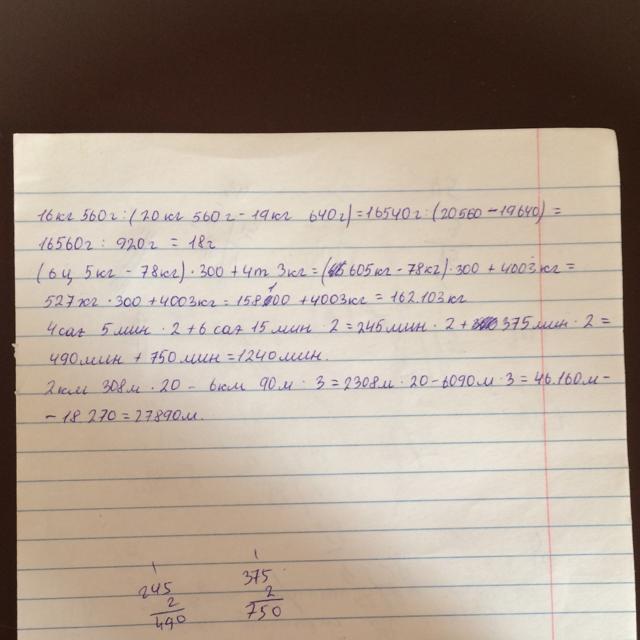 16кг 560г:(20кг 560г-19кг 640г)=16540г:(20560-19640)=
16560г : 920г = 18г
(6ц 5кг - 78кг)·300+4т 3кг=(605кг-78кг)·300+4003кг=
527кг·300+4003кг=158100+4003кг=162.103кг
4саг 5мин ·2+6саг 15мин ·2=245мин·2+375мин·2=
490мин+750мин=1240мин.
2км 308м·20-6км 90м·3=2308м·20-6090м·3=46.160м-
-18.270=27890м.
1 1
245 375
2 2
490 750